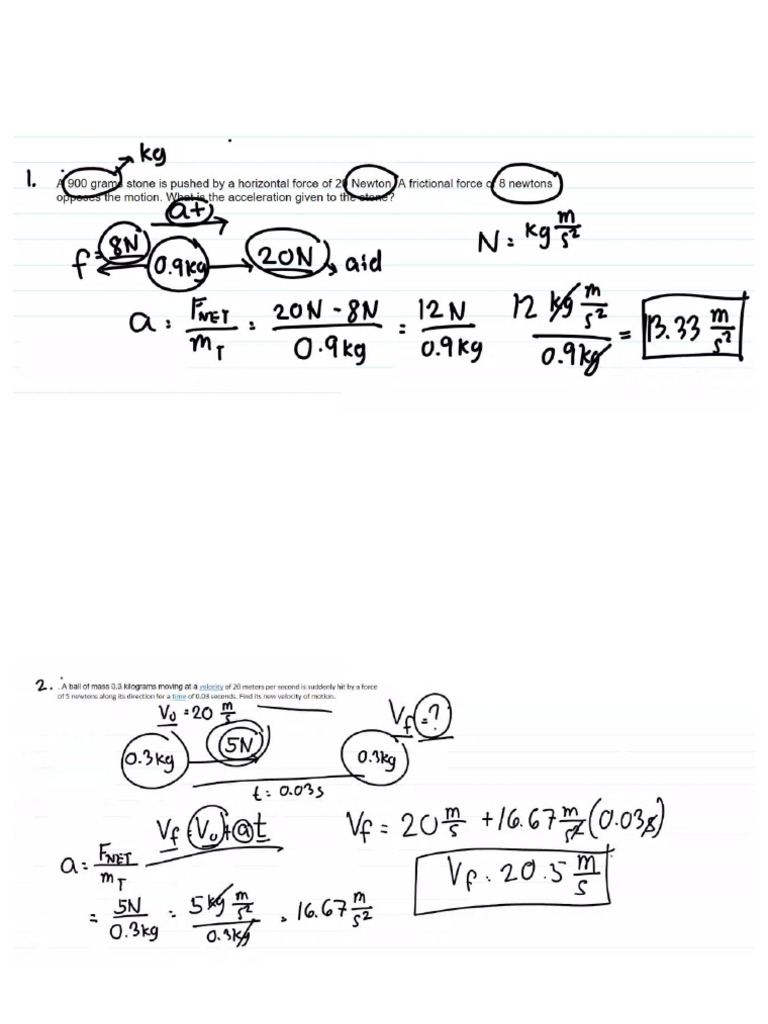 kg
1. A 900 grams stone is pushed by a horizontal force of 20 Newton. A frictional force of 8 newtons
opposes the motion. What is the acceleration given to the stone?
a+
f = 8N 0.9kg 20N aid
N = kg m/s²
a = F_NET/m_T = 20N - 8N/0.9kg = 12N/0.9kg 12 kg m/s²/0.9kg = 13.33 m/s²
2. . A ball of mass 0.3 kilograms moving at a velocity of 20 meters per second is suddenly hit by a force
of 5 newtons along its direction for a time of 0.03 seconds. Find its new velocity of motion.
V₀ = 20 m/s
V_f = ?
0.3kg 5N 0.3kg
t = 0.03s
V_f = V₀ + at
V_f = 20 m/s + 16.67 m/s² (0.03s)
a = F_NET/m_T
V_f = 20.5 m/s
= 5N/0.3kg = 5 kg m/s²/0.3kg = 16.67 m/s²